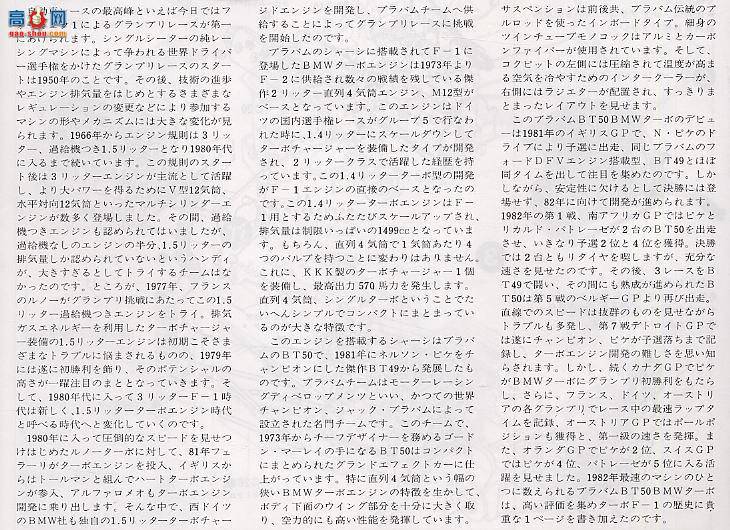 自動車レースの最高峰といえば今日ではフ
1によるグランプリレースが第一
にあげられます。シングルシーターの純レー
シングマシンによって争われる世界ドライバ
ー選手権をかけたグランプリレースのスター
トは1950年のことです。その後、技術の進歩
やエンジン排気量をはじめとするさまざまな
レギュレーションの変更などにより参加する
マシンの形やメカニズムには大きな変化が見
られます。1966年からエンジン規則は3リッ
ター、過給機つき1.5リッターとなり1980年代
に入るまで続いています。この規則のスター
ト後は3リッターエンジンが主流として活躍
し、より大パワーを得るためにV型12気筒、
水平対向12気筒といったマルチシリンダーエ
ンジンが数多く登場しました。その間、過給
機つきエンジンも認められてはいましたが、
過給機なしのエンジンの半分、1.5リッターの
排気量しか認められていないというハンディ
が、大きすぎるとしてトライするチームはな
かったのです。ところが、1977年、フランス
のルノーがグランプリ挑戦にあたってこの1.5
リッター過給機つきエンジンをトライ。排気
ガスエネルギーを利用したターボチャージャ
ー装備の1.5リッターエンジンは初期こそさま
ざまなトラブルに悩まされるものの、1979年
には遂に初勝利を飾り、そのポテンシャルの
高さが一躍注目のまととなっていきます。そ
して、1980年代に入って3リッターF-1時
代は新しく、1.5リッターターボエンジン時代
と呼べる時代へと変化していくのです。
1980年に入って圧倒的なスピードを見せつ
けはじめたルノーターボに対して、81年フェ
ラーリがターボエンジンを投入、イギリスか
らはトールマンと組んでハートターボエンジ
ンが参入、アルファロメオもターボエンジン
開発に乗り出します。そんな中で、西ドイツ
のBMW社も独自の1.5リッターターボチャー
ジドエンジンを開発し、ブラバムチームへ供
給することによってグランプリレースに挑戦
を開始したのです。
ブラバムのシャーシに搭載されてF-1に
登場したBMWターボエンジンは1973年より
F-2に供給され数々の戦績を残している傑
作2リッター直列4気筒エンジン、M12型が
ベースとなっています。このエンジンはドイ
ツの国内選手権レースがグループ5で行なわ
れた時に、1.4リッターにスケールダウンして
ターボチャージャーを装備したタイプが開発
され、2リッタークラスで活躍した経歴を持
っています。この1.4リッターターボ型の開発
がF-1エンジンの直接のベースとなったの
です。この1.4リッターターボエンジンはF-
1用とするためふたたびスケールアップされ、
排気量は制限いっぱいの1499ccとなっていま
す。もちろん、直列4気筒で1気筒あたり4
つのバルブを持つことに変わりはありません。
これに、KKK製のターボチャージャー1個
を装備し、最高出力570馬力を発生します。
直列4気筒、シングルターボということでた
いへんシンプルでコンパクトにまとまってい
るのが大きな特徴です。
このエンジンを搭載するシャーシはブラバ
ムのBT50で、1981年にネルソン・ピケをチャ
ンピオンにした傑作BT49から発展したも
のです。ブラバムチームはモーターレーシン
グディベロップメンツといい、かつての世界
チャンピオン、ジャック・ブラバムによって
設立された名門チームです。このチームで、
1973年からチーフデザイナーを務めるゴード
ン・マーレイの手になるBT50はコンパクト
にまとめられたグランドエフェクトカーに仕
上がっています。特に直列4気筒という幅の
狭いBMWターボエンジンの特徴を生かして、
ボディ下面のウイング部分を十分に大きく取
り、空力的にも高い性能を発揮しています。
サスペンションは前後共、ブラバム伝統のプ
ルロッドを使ったインボードタイプ。細身の
ツインチューブモノコックはアルミとカーボ
ンファイバーが使用されています。そして、
コクピットの左側には圧縮されて温度が高ま
る空気を冷やすためのインタークーラーが、
右側にはラジエターが配置され、すっきりま
とまったレイアウトを見せます。
このブラバムBT50BMWターボのデビュ
ーは1981年のイギリスGPで、N・ピケのド
ライブにより予選に出走、同じブラバムのフ
ォードDFVエンジン搭載型、BT49とほぼ
同タイムを出して注目を集めたのです。しか
しながら、安定性に欠けるとして決勝には登
場せず、82年に向けて開発が進められます。
1982年の第1戦、南アフリカGPではピケと
リカルド・パトレーゼが2台のBT50を出走
させ、いきなり予選2位と4位を獲得。決勝
では2台ともリタイヤを喫しますが、充分な
速さを見せたのです。その後、3レースをB
T49で闘い、その間にも熟成が進められたB
T50は第5戦のベルギーGPより再び出走。
直線でのスピードは抜群のものを見せながら
トラブルも多発し、第7戦デトロイトGPで
は遂にチャンピオン、ピケが予選落ちまで記
録し、ターボエンジン開発の難しさを思い知
らされます。しかし、続くカナダGPでピケ
がBMWターボにグランプリ初勝利をもたら
し、さらに、フランス、ドイツ、オーストリ
アの各グランプリでレース中の最速ラップタ
イムを記録、オーストリアGPではポールポ
ジションも獲得と、第一級の速さを発揮。ま
た、オランダGPでピケが2位、スイスGP
ではピケが4位、パトレーゼが5位に入る活
躍を見せました。1982年最速のマシンのひと
つに数えられるブラバムBT50BMWターボ
は、高い評価を集めターボF-1の歴史に貴
重な1ページを書き加えたのです。